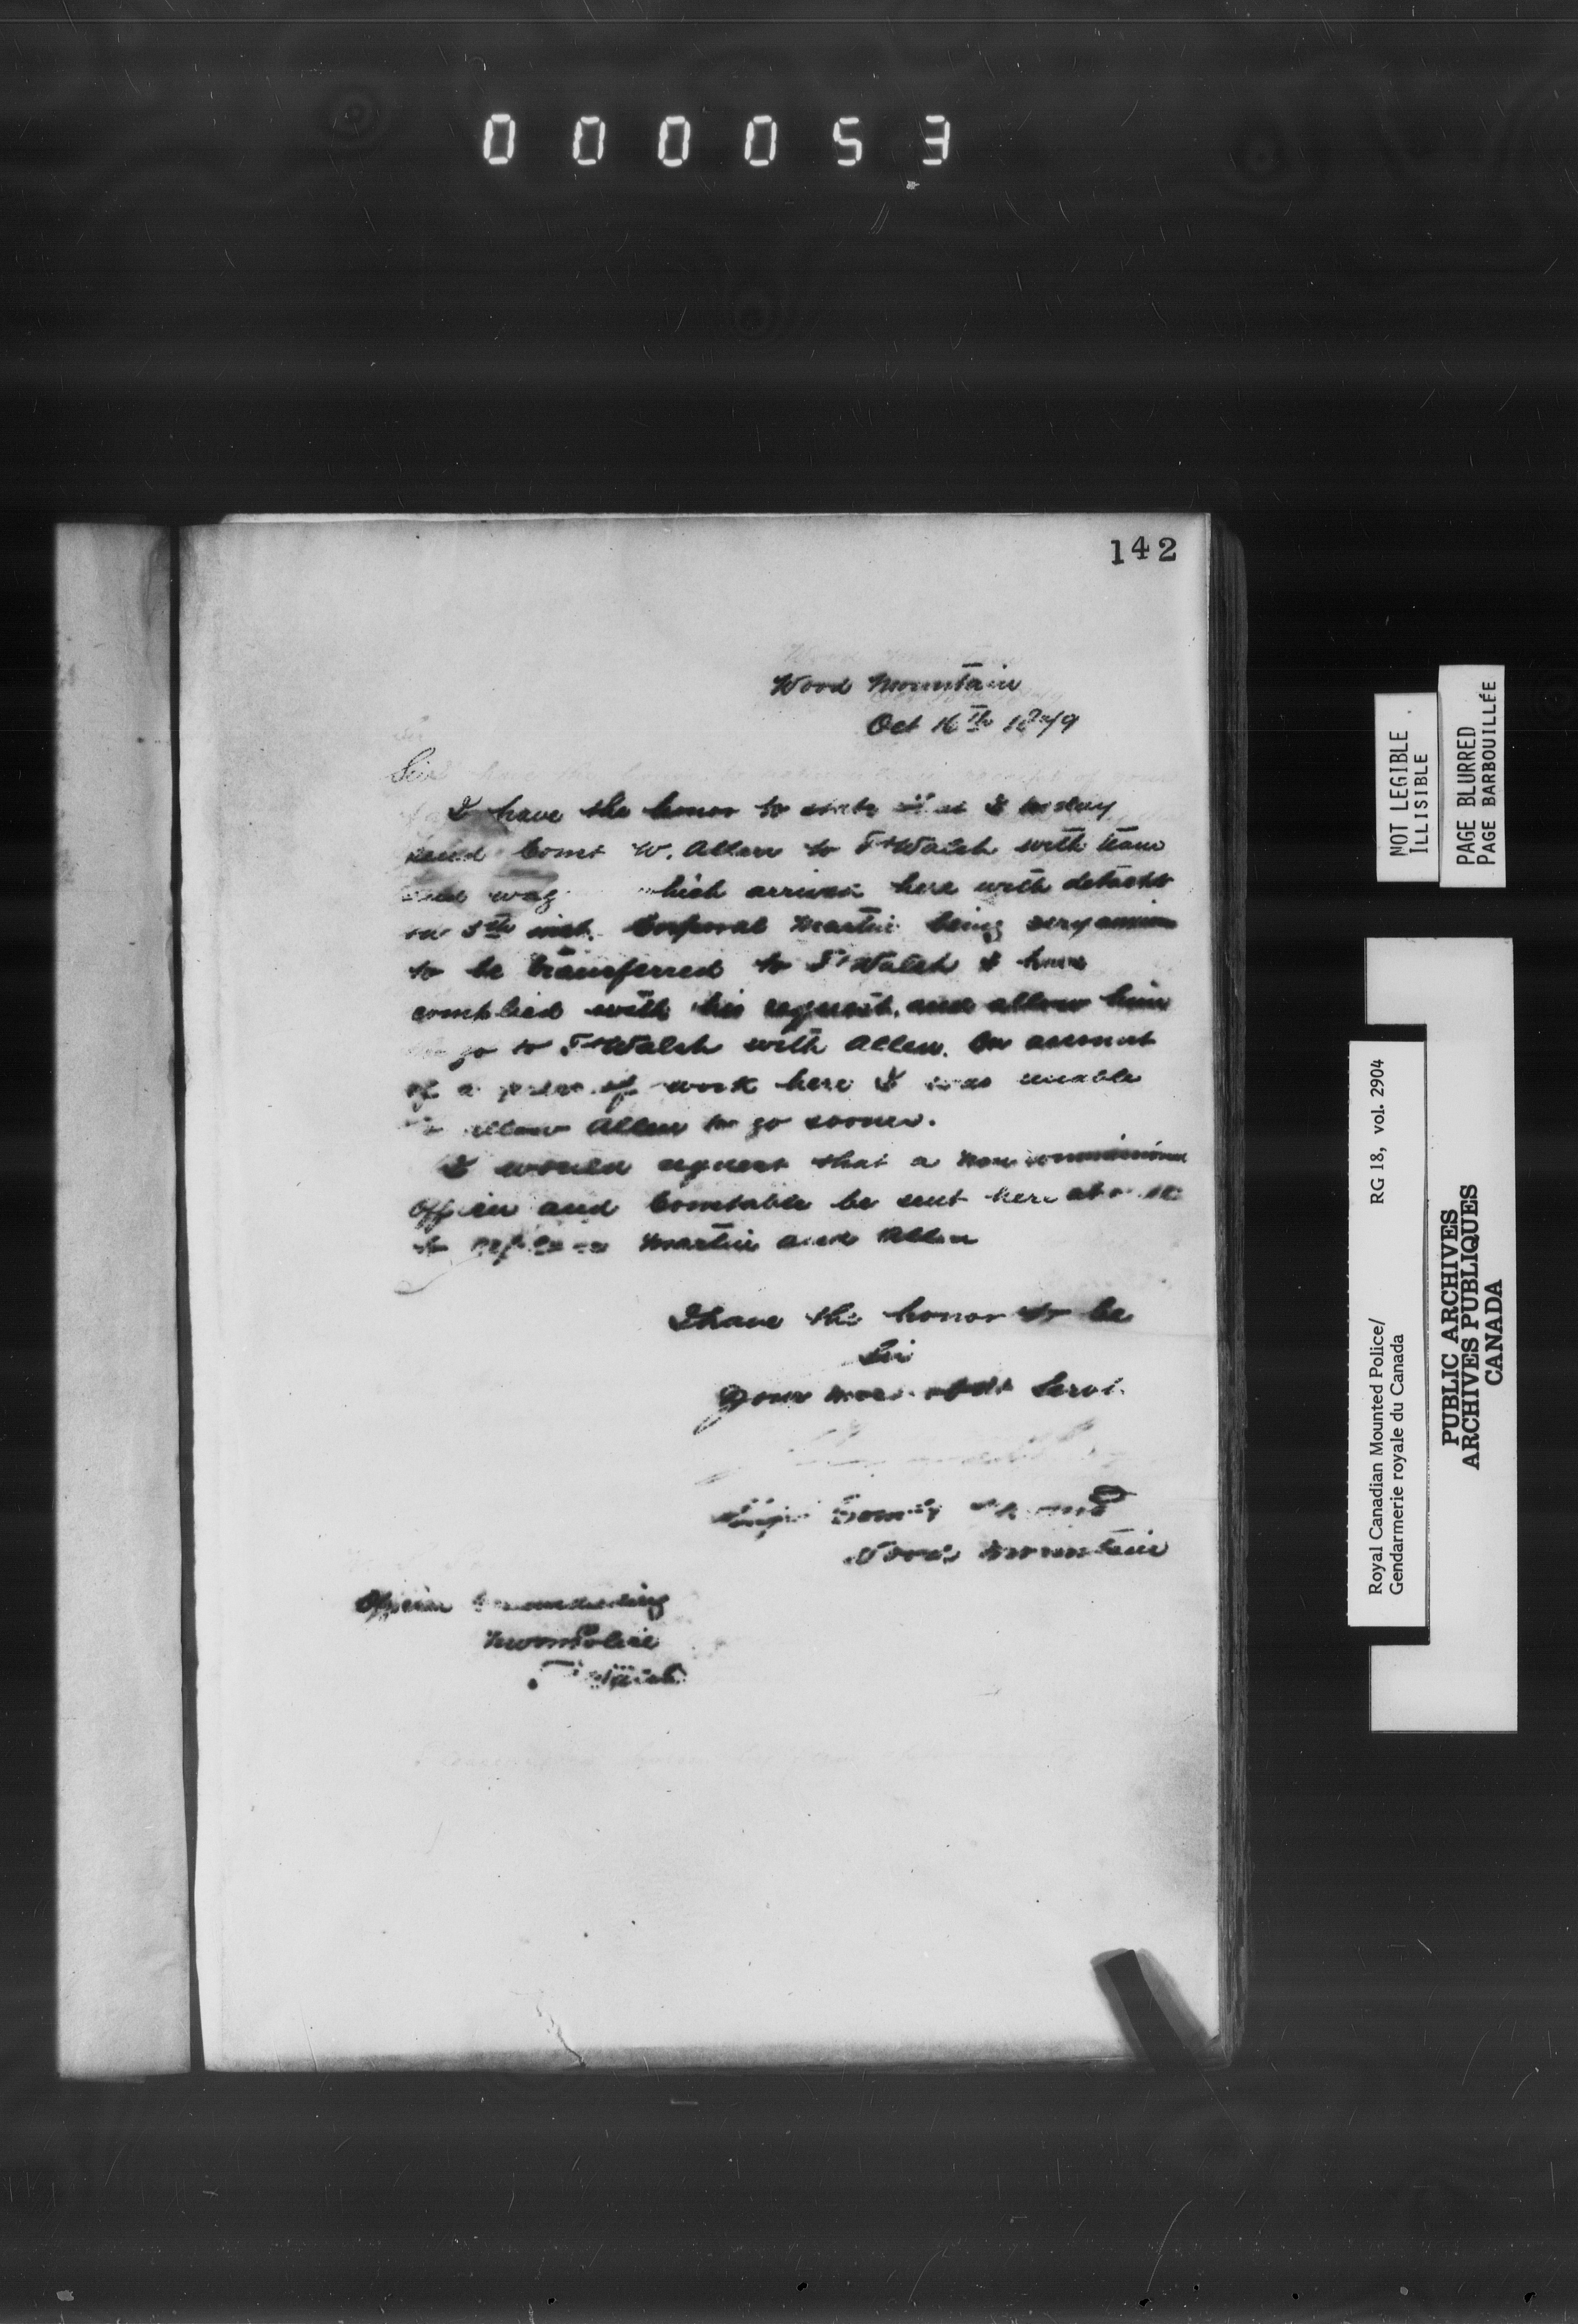 000053
142
Wood Mountain
Oct 16th 1879
Sir
I have the honor to state that I today
send Const W. Allen to Ft Walsh with team
and wag which arrived here with detacht
on 5th inst. Corporal Martin being very anxious
to be transferred to Ft Walsh I have
complied with his request, and allow him
to go to Ft Walsh with Allen. On account
of a press of work here I was unable
to allow Allen to go sooner.
I would request that a non commissioned
Officer and Constable be sent here at once
to replace Martin and Allen
I have the honor to be
Sir
Your most obdt Servt
Supt Comdg
Wood Mountain
Officer Commanding
N W M Police
Ft Walsh
NOT LEGIBLE
ILLISIBLE
PAGE BLURRED
PAGE BARBOUILLÉE
Royal Canadian Mounted Police/ RG 18, vol. 2904
Gendarmerie royale du Canada
PUBLIC ARCHIVES
ARCHIVES PUBLIQUES
CANADA